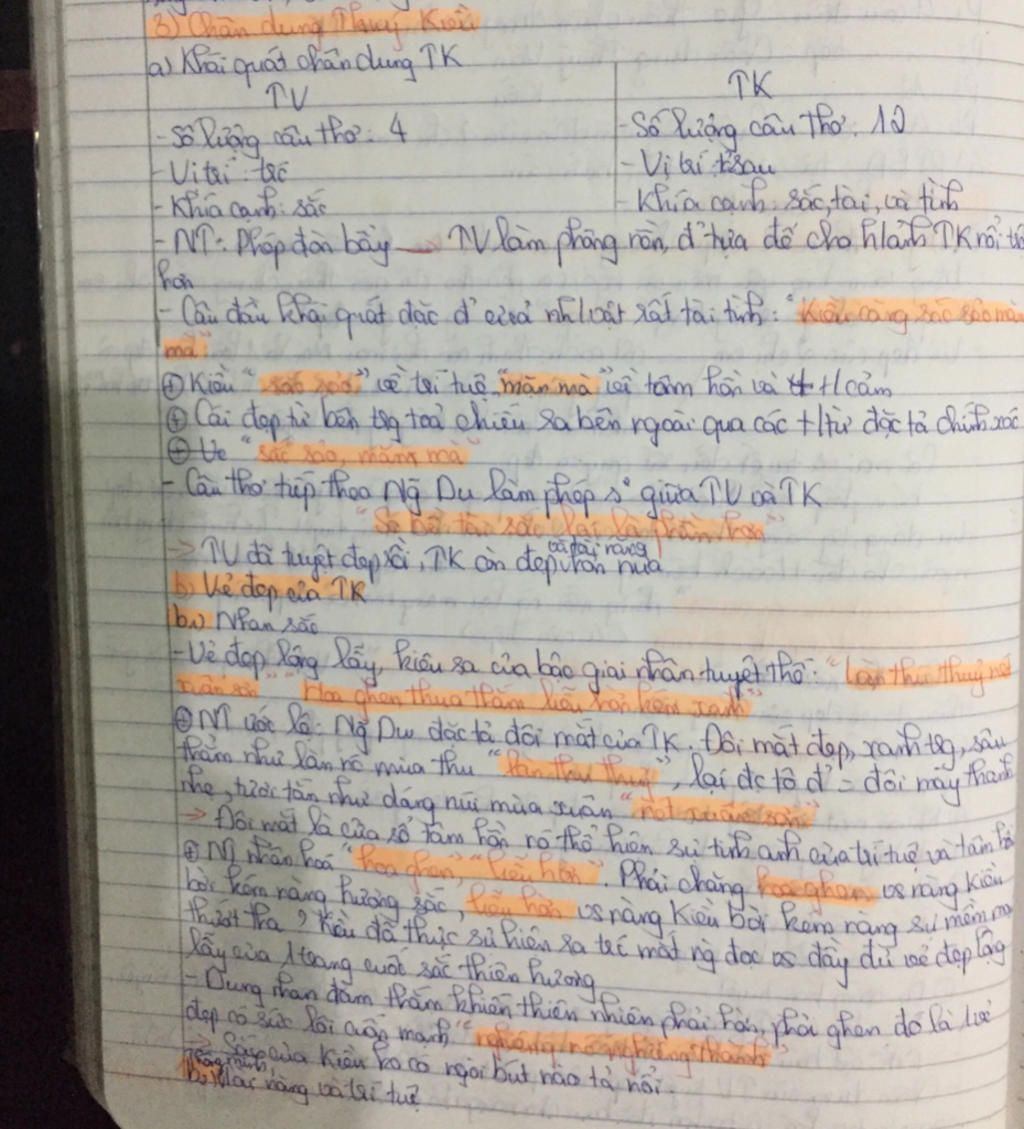 3) Chân dung Thúy Kiều
a) Khái quát chân dung TK
TV TK
- Số lượng câu thơ: 4 - Số lượng câu thơ: 12
- Vị trí: trc - Vị trí: sau
- Khía cạnh: sắc - Khía cạnh: sắc, tài, và tình
- NT: Phép đòn bẩy → TV làm phông nền, đ' tựa để cho hình ảnh TK nổi
hơn
- Câu đầu khái quát đặc đ' của nhân vật rất tài tình: "Kiều càng sắc sảo mặn
mà"
⊕ Kiều "sắc sảo" về trí tuệ, "mặn mà" về tâm hồn và t/cảm
⊕ Cái đẹp từ bên trg toả chiếu ra bên ngoài qua các t/từ đặc tả chính xác
⊕ Ve "sắc sảo, mặn mà"
- Câu thơ tiếp theo Ng Du làm phép s² giữa TV và TK
"So bề tài sắc lại là phần hơn"
→ TV đã tuyệt đẹp rồi, TK còn đẹp và tài năng hơn nữa
b) Vẻ đẹp của TK
b₁) Nhan sắc
- Vẻ đẹp lộng lẫy, kiêu sa của bậc giai nhân tuyệt thế: "Làn thu thuỷ nét
xuân sơn" "Hoa ghen thua thắm liễu hờn kém xanh"
⊕ NT ước lệ: Ng Du đặc tả đôi mắt của TK. Đôi mắt đẹp, xanh trg, sâu
thẳm như làn nc mùa thu "làn thu thuỷ", lại đc tô đ' = đôi mày thanh
nhẹ, tươi tắn như dáng núi mùa xuân "nét xuân sơn"
→ Đôi mắt là cửa sổ tâm hồn nó thể hiện sự tinh anh của trí tuệ và tâm hồ
⊕ NT nhân hoá "hoa ghen", "liễu hờn". Phải chăng hoa ghen vs nàng Kiều
bởi kém nàng hương sắc, liễu hờn vs nàng Kiều bởi kém nàng sự mềm mại
thướt tha, Kiều đã thực sự hiện ra trc mắt ng đọc vs đầy đủ vẻ đẹp lộng
lẫy của 1 trang quốc sắc thiên hương
- Dung nhan đằm thắm khiến thiên nhiên phải hờn, phải ghen đó là vẻ
đẹp có sức lôi cuốn mạnh "nghiêng nc nghiêng thành"
→ Sắc của Kiều ko có ngòi bút nào tả nổi.
b₂) Tài năng và trí tuệ